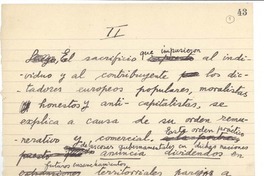 43
1
II
El sacrificio que impusieron al indi-
viduo y al contribuyente los dic-
tadores europeos populares, moralistas
y honestos y anti-capitalistas, se
explica a causa de su orden remu-
nerativo y comercial. Este orden
de decisiones gubernamentales en dichas naciones
anuncia dividendos en
futuros ensanchamientos
territoriales